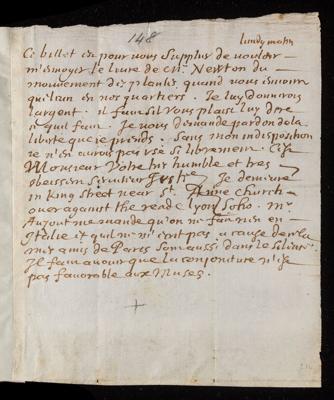 148
lundy matin
Ce billet est pour vous supplier de vouloir
m'envoyer le livre de Mr. Newton du
mouvement des planetes, quand vous
quelcun en nos quartiers. Je luy donnerois
l'argent. il faut s'il vous plaist luy dire
Je vous demande pardon de la
liberté que je prends. Sans mon indisposition
je n'en aurois pas usé si librement. C'est
Monsieur Votre tres humble et tres
obeissant serviteur Justel Je demeure
in King street near St. Anne Church
over against the read Lyon Soho. Mr
Auzout me mande qu'on ne fait rien en
Italie et qu'il ne m'ecrit pas a cause de
mes amis de Paris sont aussi dans le silence.
Il faut avouer que la conjoncture n'est
pas favorable aux Muses.